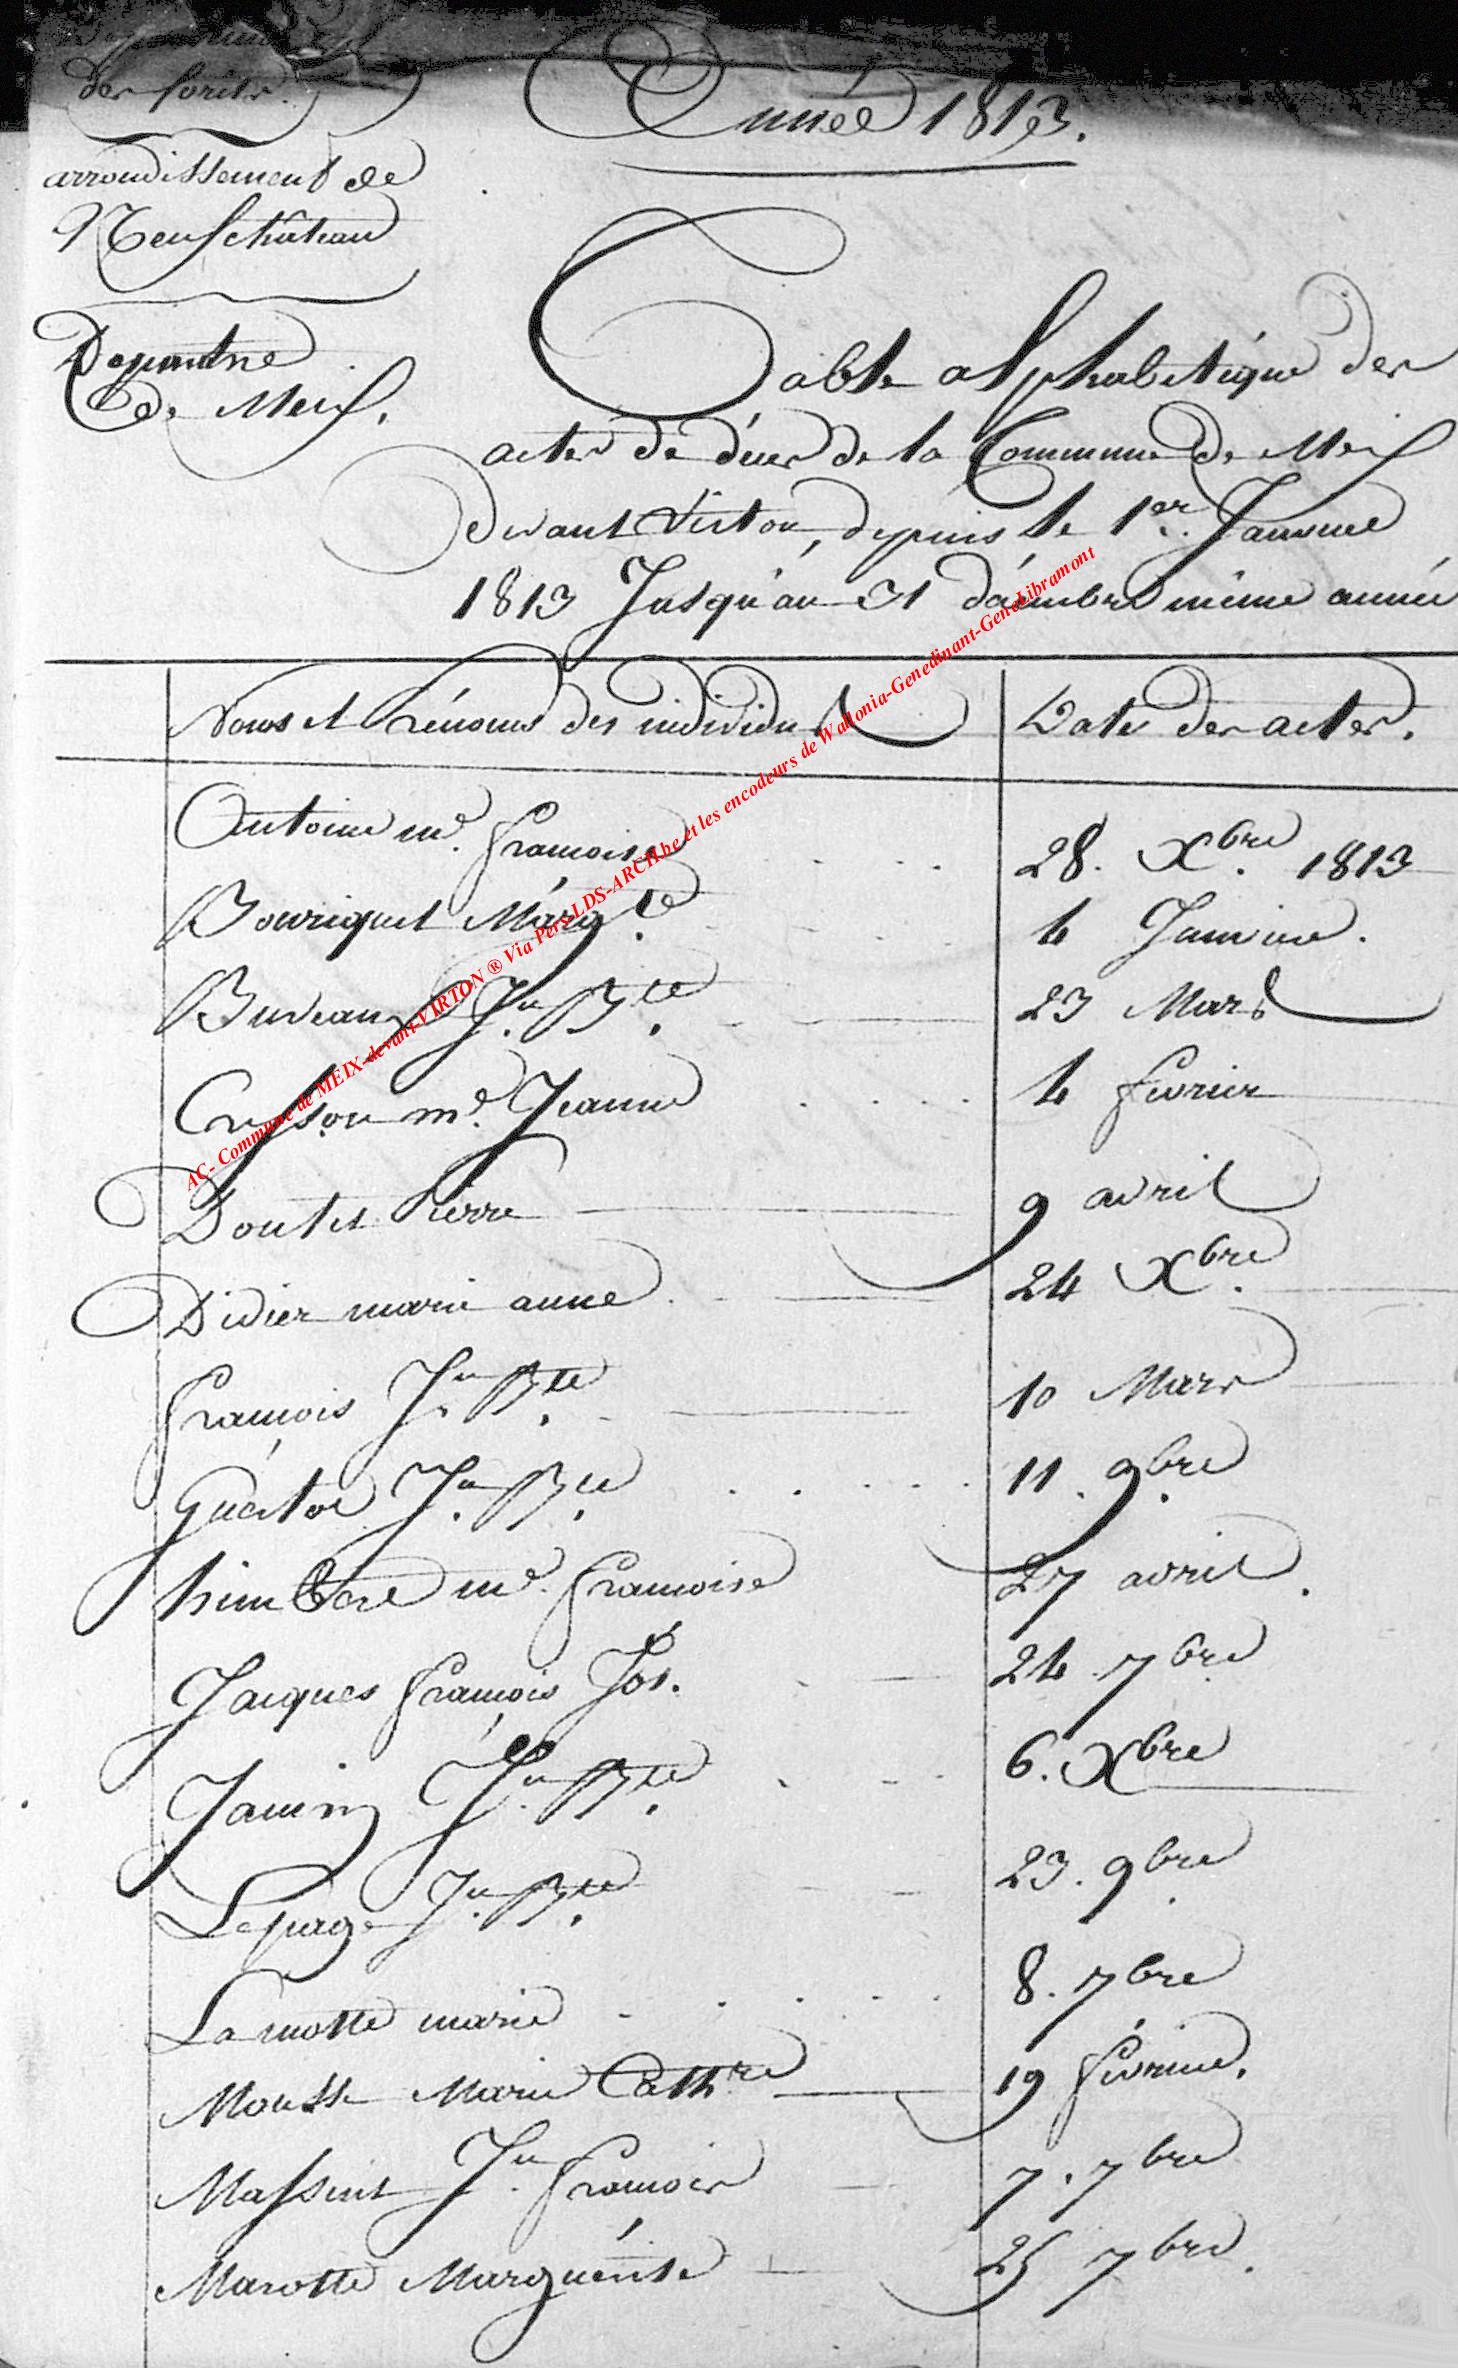 des forêts
Année 1813.
arrondissement de
Neufchâteau
de Meix.
Table alphabétique des
actes de décès de la Commune de Meix
devant Virton, depuis le 1er. Janvier
1813 Jusqu'au 31 décembre même année
Noms et Prénoms des individus
Date des actes.
Antoine me. françoise 28. Xbre. 1813
Bouriquet Margte. 4 Janvier.
Buveaux Jn. Bte. 23 Mars
Cresson me. Jeanne 4 fevrier
Doutet Pierre 9 avril
Didier marie anne 24 Xbre.
françois Jn. Bte. 10 Mars
Jn. Bte. 11. 9bre.
me. françoise 27 avril.
Jacques françois Jos. 24 7bre
Janin Jn. Bte. 6. Xbre
Lepage Jn. Bte. 23. 9bre
Lamotte marie 8. 7bre
Mousse Marie Cathre 19 février.
Massint Jn. françois 7. 7bre
Marotte Marguérite 25 7bre.
AC- Commune de MEIX-devant-VIRTON ® Via Pers-LDS-ARCH.be et les encodeurs de Wallonia-Genedinant-GeneLibramont